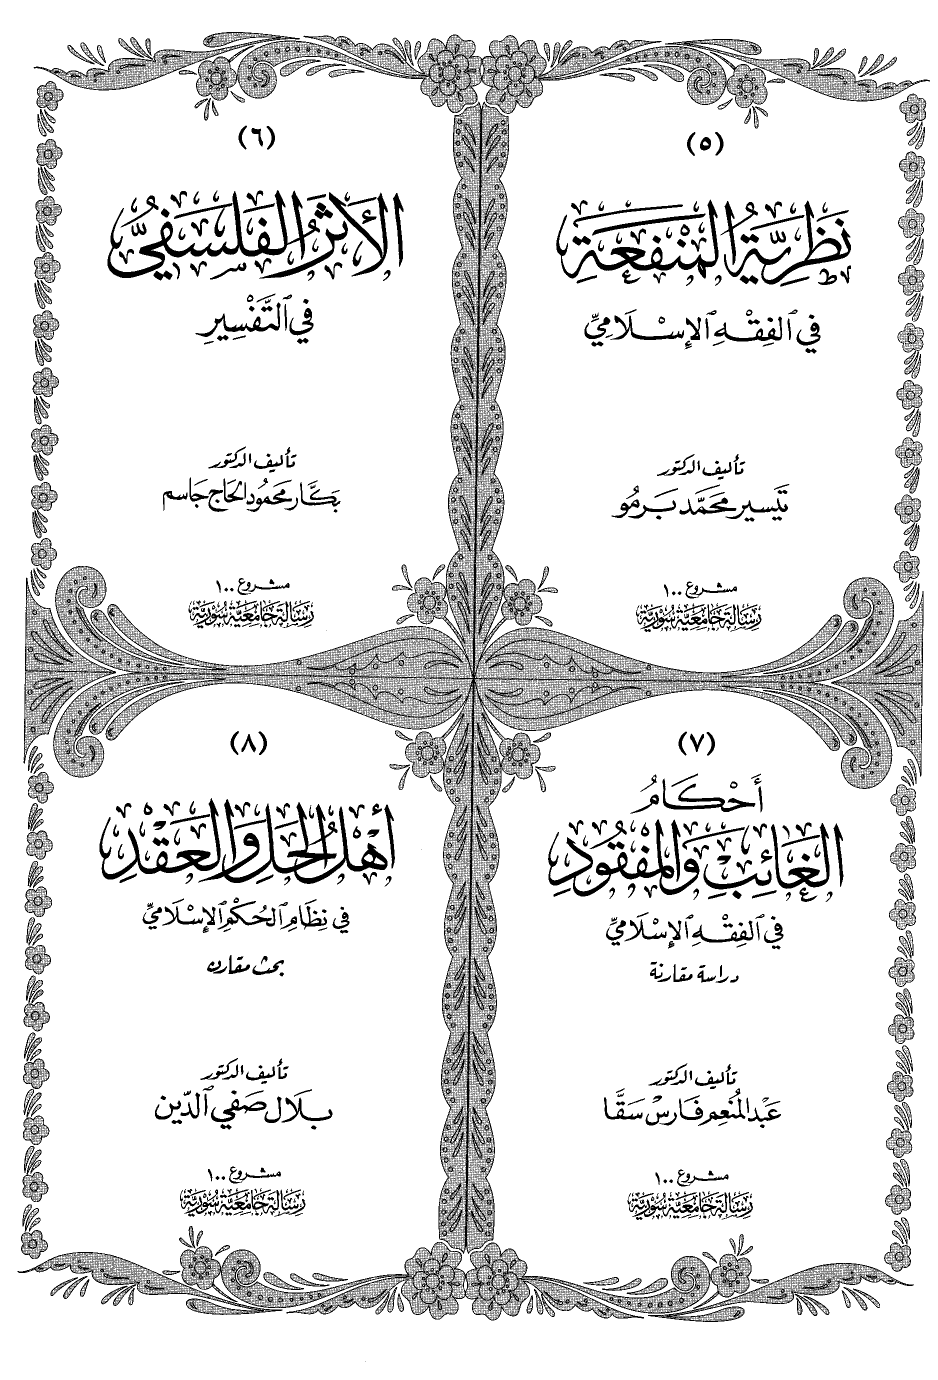 (٥)
نَظَرِيَّةُ المَنْفَعَةِ
فِي ٱلفِقْهِ ٱلإِسْلَامِيِّ
تأليف الدكتور
تَيسير محمَّد بَرمُو
مشروع ١٠٠
رِسَالَة جَامِعيَّة سُورِيَّة
(٦)
الأَثَرُ الفَلسَفِيُّ
فِي ٱلتَّفْسِيرِ
تأليف الدكتور
بَكَّار محمُود الحاج جَاسم
مشروع ١٠٠
رِسَالَة جَامِعيَّة سُورِيَّة
(٧)
أَحْكَامُ
الغَائِبِ وَالمَفْقُودِ
فِي ٱلفِقْهِ ٱلإِسْلَامِيِّ
دراسة مقارنة
تأليف الدكتور
عَبْد المُنعِم فَارس سَقَّا
مشروع ١٠٠
رِسَالَة جَامِعيَّة سُورِيَّة
(٨)
أَهْلُ الحَلِّ وَالعَقْدِ
فِي نِظَامِ ٱلحُكْمِ ٱلإِسْلَامِيِّ
بحث مقارن
تأليف الدكتور
بلَال صَفي ٱلدِّين
مشروع ١٠٠
رِسَالَة جَامِعيَّة سُورِيَّة